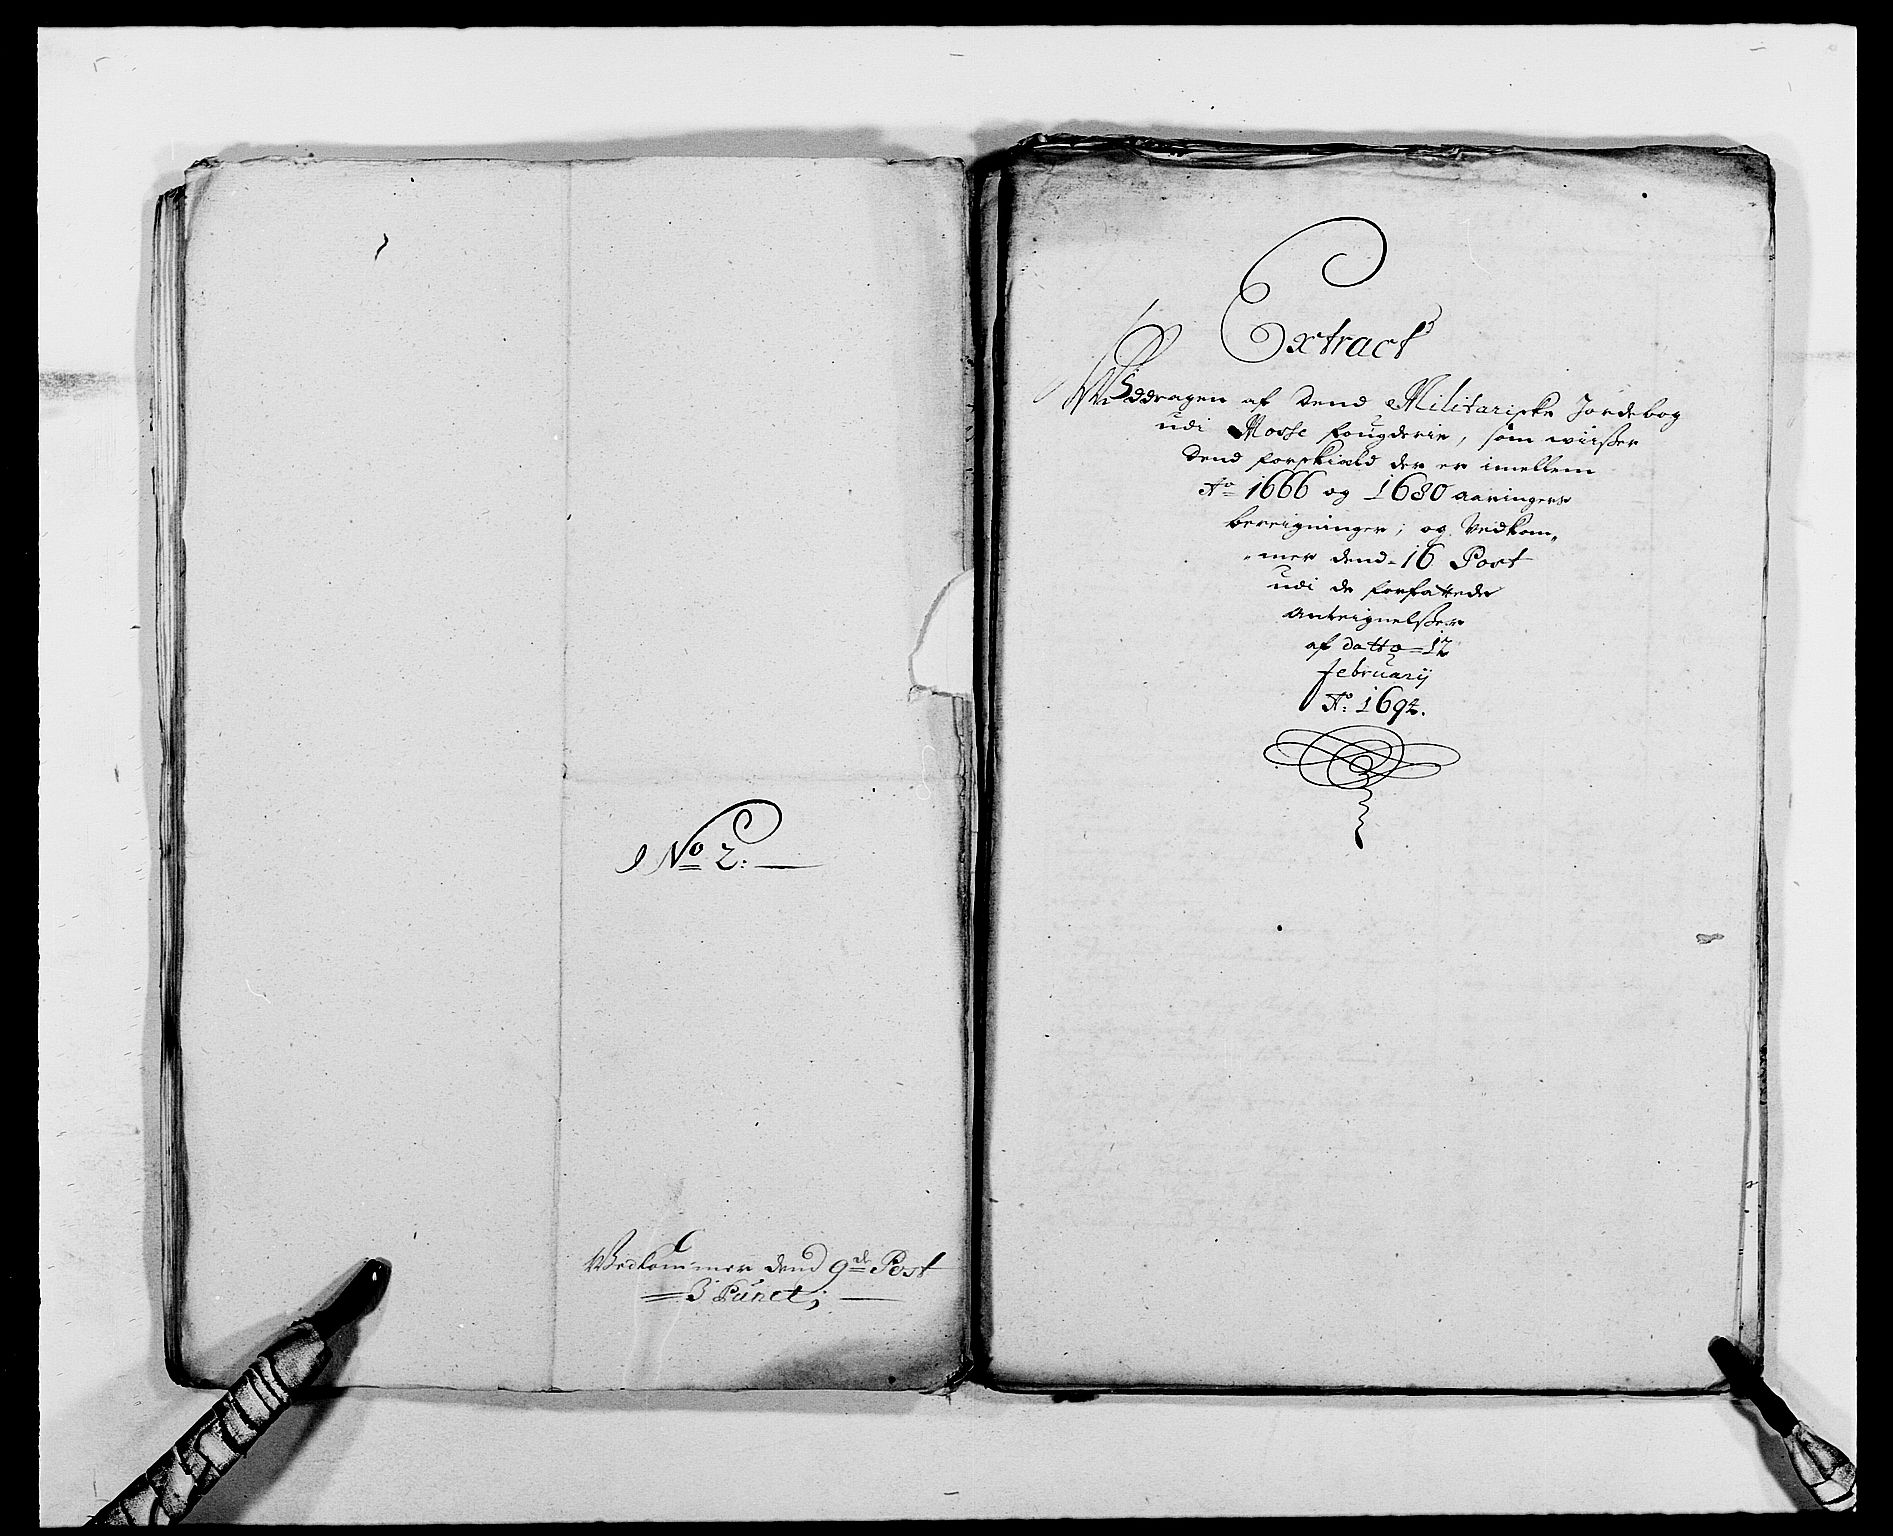 No 2:
Vedkommer dend 9de Post
3 Punct;
Extract
Uddragen af dend Militariske Jordebog
udi Mosse fougderie, som wiisser
dend forskield der er imellem
Ao 1666 og 1680 aaringers
bereigninger; og Vedkom„
„mer dend 16 Post
udi de forfattede
Anteignelsser
af datto 12
february
Ao: 1692.